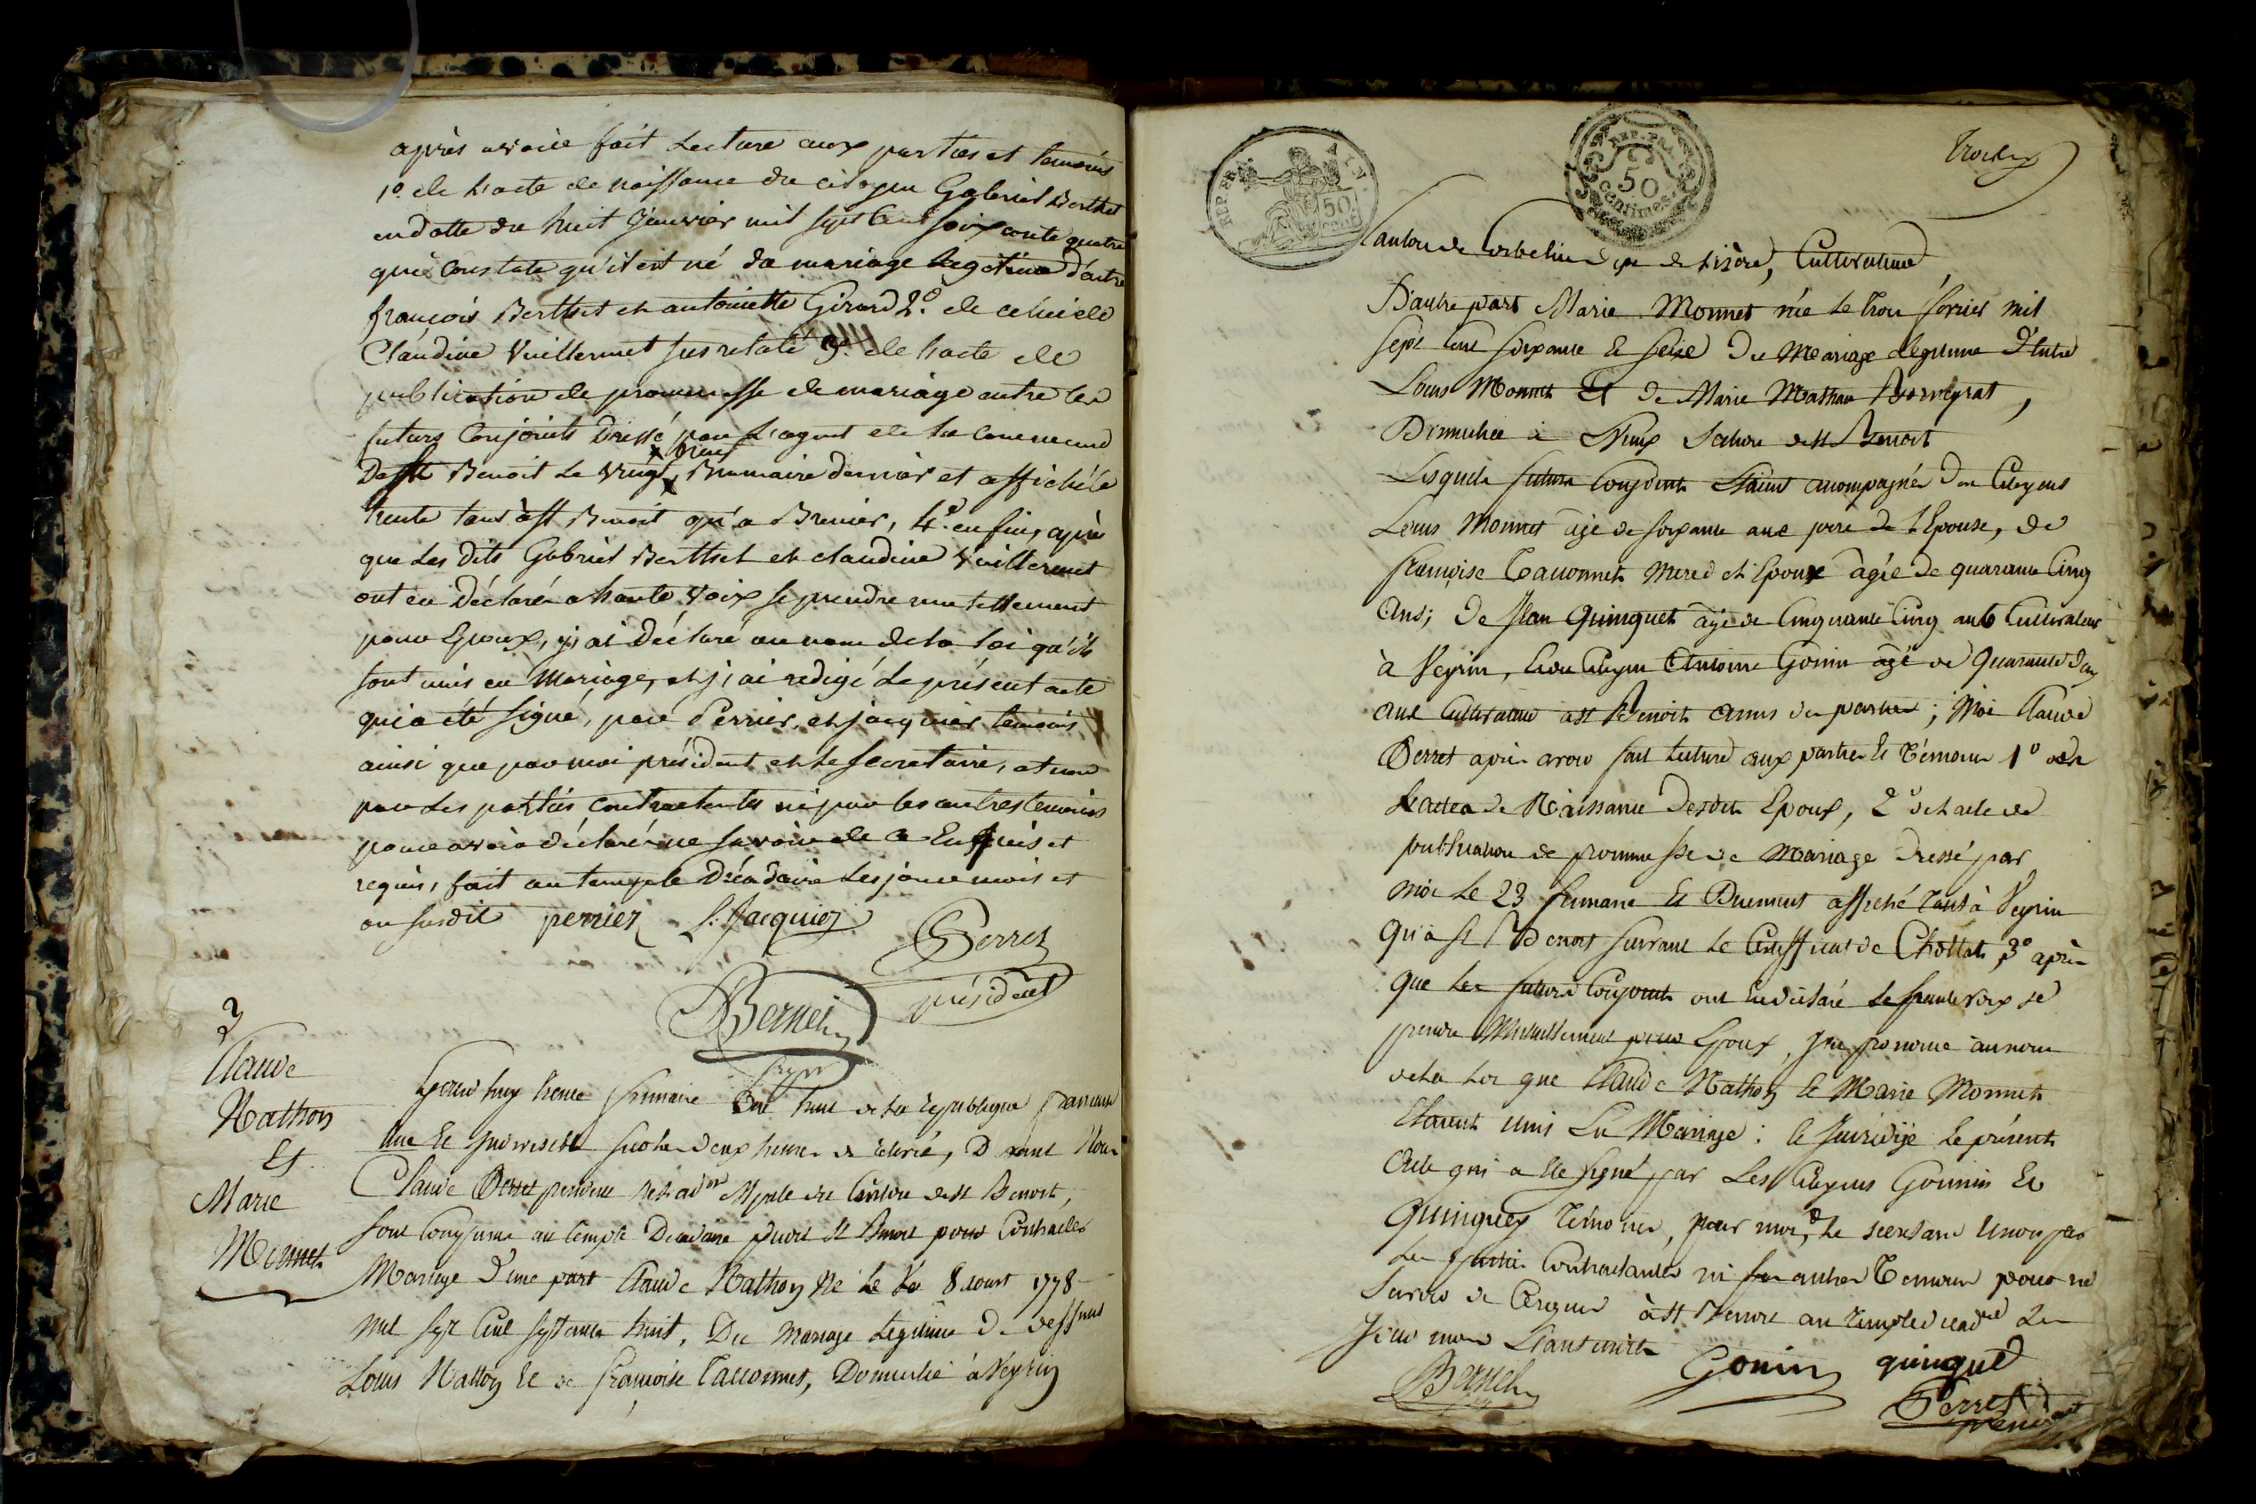 après avoir fait Lecture aux parties et temoins
1º. de L'acte de naissance du citoyen Gabriel Berthet
en datte du huit Janvier mil sept Cent soixante quatre
qui Constate qu'il est né du mariage Legetime d'entre
françois Berthet et antoinette Girard 2º. de celui de
Claudine Vuillermet susrelaté 3º. de L'acte de
publication de promesse de mariage entre les
futurs Conjoints Dressé par L'agent de la Commune
De St Benoit Le vingt neuf Brumaire dernier et affiché le
trente tant à St Benoit qu'a Brenier, 4º. enfin, après
que Les dits Gabriel Berthet et Claudine Vuillermet
ont eu Déclaré a haute voix se prendre mutuellement
pour Epoux, j'ai Déclaré au nom de la loi qu'ils
sont unis en Mariage, et j'ai redigé Le présent acte
qui a été signé, par Perrier, et jacquier temoins
ainsi que par moi président et le Secretaire, et non
par Les parties contractantes ni par les autres temoins
pour avoir déclaré ne savoir de ce Enquis et
requis, fait au temple Décadaire Les jour mois et
an susdit perrier J: Jacquier
Perret
président
Bernel
3
Claude
Nathon
Et
Marie
Monnet
trente frimaire an huit de la republique francaise
une Et indivisible deux heures de relevé, Devant Nous
Claude Perret president De L'ad.on Mp.le du Canton de St Benoit,
au temple Decadaire dudit St Benoit pour Contracter
Mariage D'une part Claude Nathon Né Le 8 aout 1778
mil sept Cent septante huit, Du Mariage Legitime de deffunt
Louis Nathon Et de françoise Tacconnet, Domicilié à Veyrin
REP. FRA. 50 centimes
Canton de Corbelin dpt de L'isère, Cultivateur
D'autre part Marie Monnet née Le trois fevrier mil
sept Cent soixante Et seize Du Mariage Legitime D'Entre
Louis Monnet Et de Marie Mathan
Domiciliée à Canton de St Benoit
Lesquels futurs Conjoints Etaient accompagnés Des Citoyens
Louis Monnet agé de soixante ans pere de L'Epouse, de
françoise Tacconnet Mere de l'Epoux agée de quarante Cinq
Ans; De Jean Quinquet agé de Cinquante Cinq ans Cultivateur
à Veyrin, Et du Citoyen Antoine Gonin agé de Quarante
ans Cultivateur à St Benoit amis des parties; Moi Claude
Perret après avoir fait Lecture aux parties Et Témoins 1º de
Lactes de Naissance Desdits Epoux, 2º de L'acte de
publication de promesse de Mariage Dressé par
moi Le 23 frimaire Et Duement affiché tant à Veyrin
Qu'à St Benoit suivant Le Certifficat de Chollat, 3º après
Que Les futurs Conjoints ont Eu déclaré à haute voix se
prendre Mutuellement pour Epoux, j'ai prononcé au nom
de La Loi que Claude Nathon Et Marie Monnet
Etaient unis En Mariage: Et j'ai redigé Le présent
Acte qui a Eté signé par Les Citoyens Gonnin Et
Quinquet Témoins, par moi, Le secretaire Et non par
Les parties Contractantes ni les autres Temoins pour ne
savoir de Ce requis à St Benoit au temple decadre Les
Jour mois Et an susdits
Bernel Gonin quinquet
Perret
president